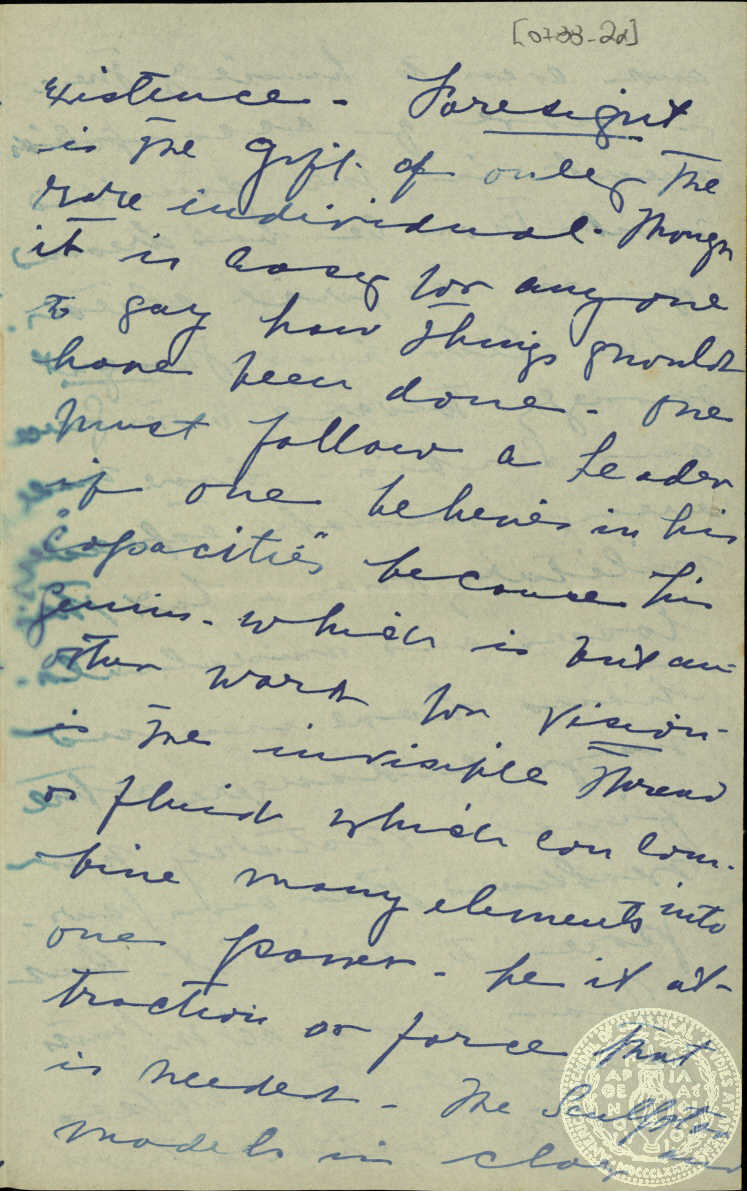 [0733-2d]
existence - Foresight
is the gift of only the
rare individual. Though
it is easy for any one
to say how things should
have been done - One
must follow a leader
if one believes in his
"capacities" because his
genius - which is but an-
other word for vision -
is the invisible thread
or fluid which can com-
bine many elements into
one power - be it at-
traction or force that
is needed - The Sculptor
models in clay and